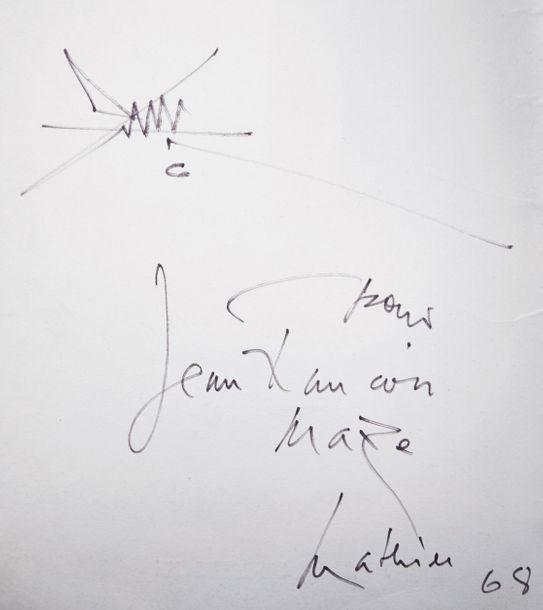 pour
Jean Francois
Maze
Mathieu 68